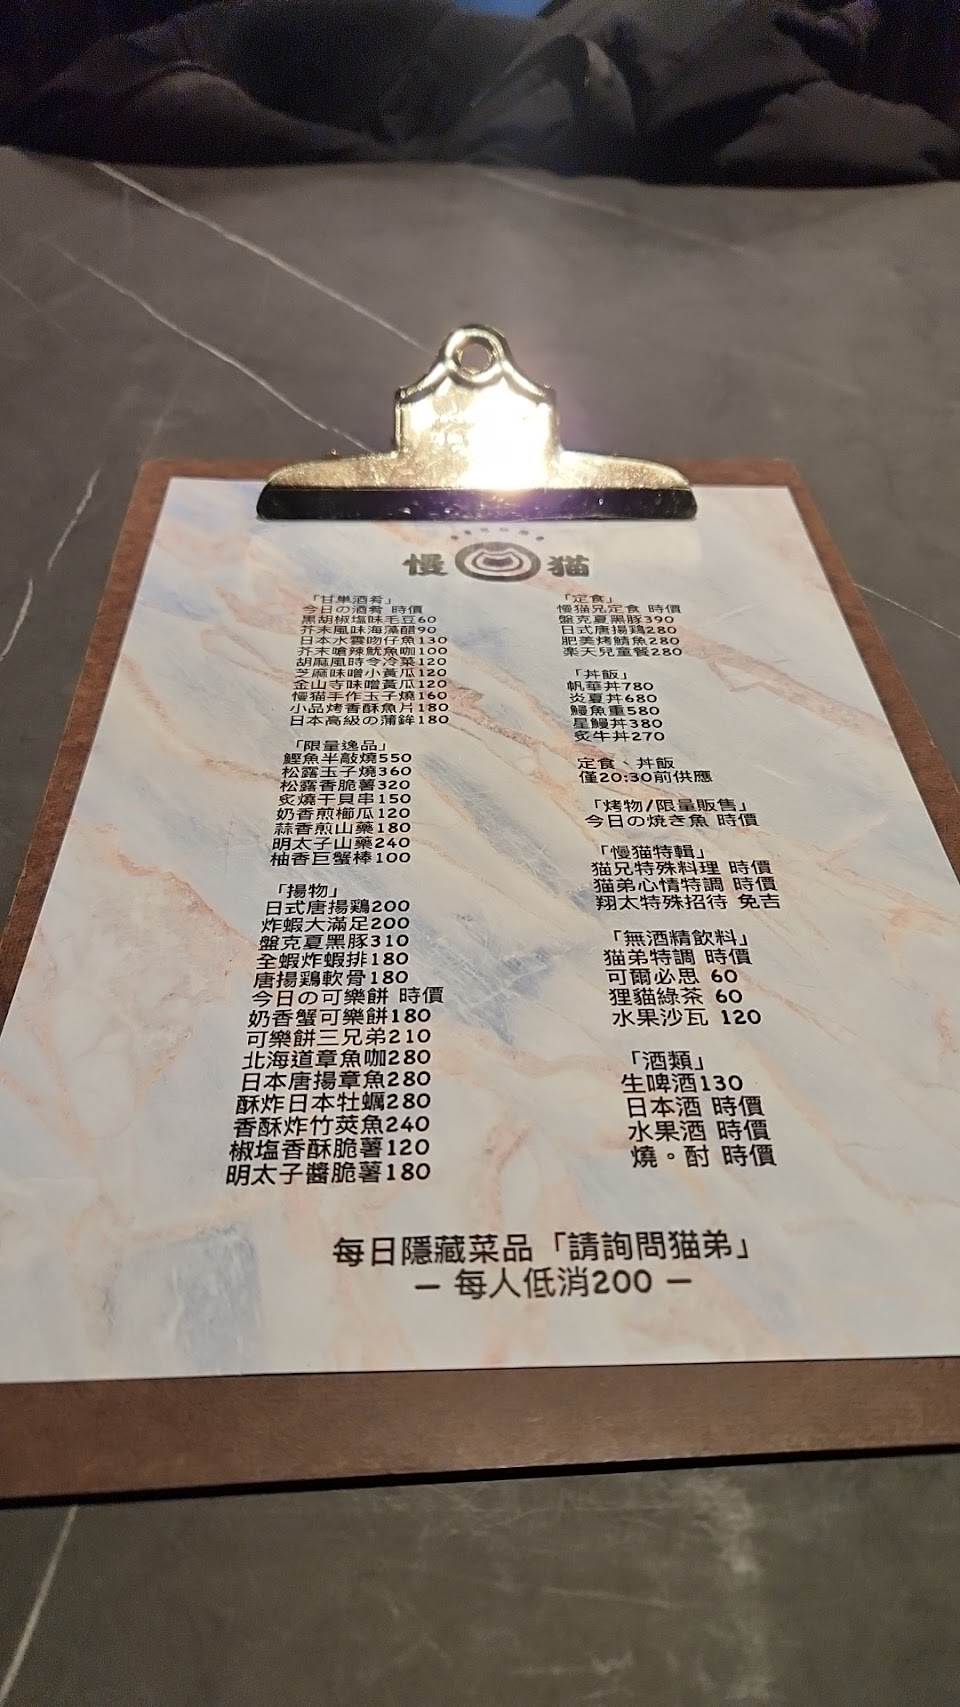 慢 猫
「甘単酒肴」
今日の酒肴 時價
黑胡椒塩味毛豆60
芥末風味海藻醋90
日本水雲吻仔魚130
芥末嗆辣魷魚咖100
胡麻風時令冷菜120
芝麻味噌小黃瓜120
金山寺味噌黃瓜120
慢猫手作玉子燒160
小品烤香酥魚片180
日本高級の蒲鉾180
「限量逸品」
鰹魚半敲燒550
松露玉子燒360
松露香脆薯320
炙燒干貝串150
奶香煎櫛瓜120
蒜香煎山藥180
明太子山藥240
柚香巨蟹棒100
「揚物」
日式唐揚鶏200
炸蝦大滿足200
盤克夏黑豚310
全蝦炸蝦排180
唐揚鶏軟骨180
今日の可樂餅 時價
奶香蟹可樂餅180
可樂餅三兄弟210
北海道章魚咖280
日本唐揚章魚280
酥炸日本牡蠣280
香酥炸竹莢魚240
椒塩香酥脆薯120
明太子醬脆薯180
「定食」
慢猫兄定食 時價
盤克夏黑豚390
日式唐揚鶏280
肥美烤鯖魚280
楽天兒童餐280
「丼飯」
帆華丼780
炎夏丼680
鰻魚重580
星鰻丼380
炙牛丼270
定食、丼飯
僅20:30前供應
「烤物/限量販售」
今日の焼き魚 時價
「慢猫特輯」
猫兄特殊料理 時價
猫弟心情特調 時價
翔太特殊招待 免吉
「無酒精飲料」
猫弟特調 時價
可爾必思 60
狸貓綠茶 60
水果沙瓦 120
「酒類」
生啤酒130
日本酒 時價
水果酒 時價
燒。酎 時價
每日隱藏菜品「請詢問猫弟」
— 每人低消200 —